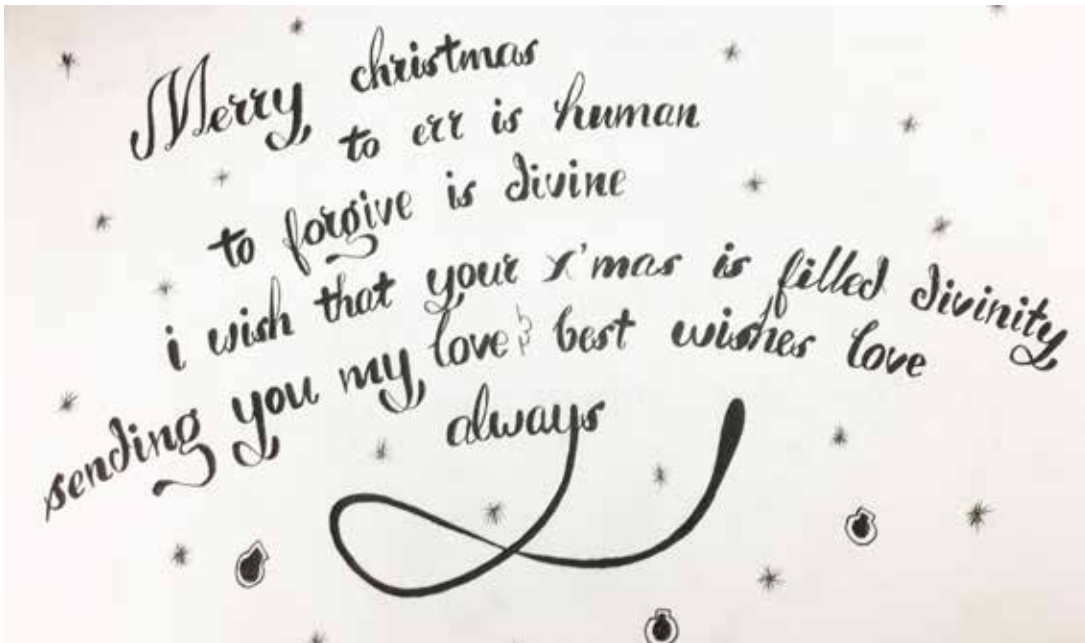 Merry christmas
to err is human
to forgive is divine
i wish that your x'mas is filled divinity
sending you my love & best wishes love
always